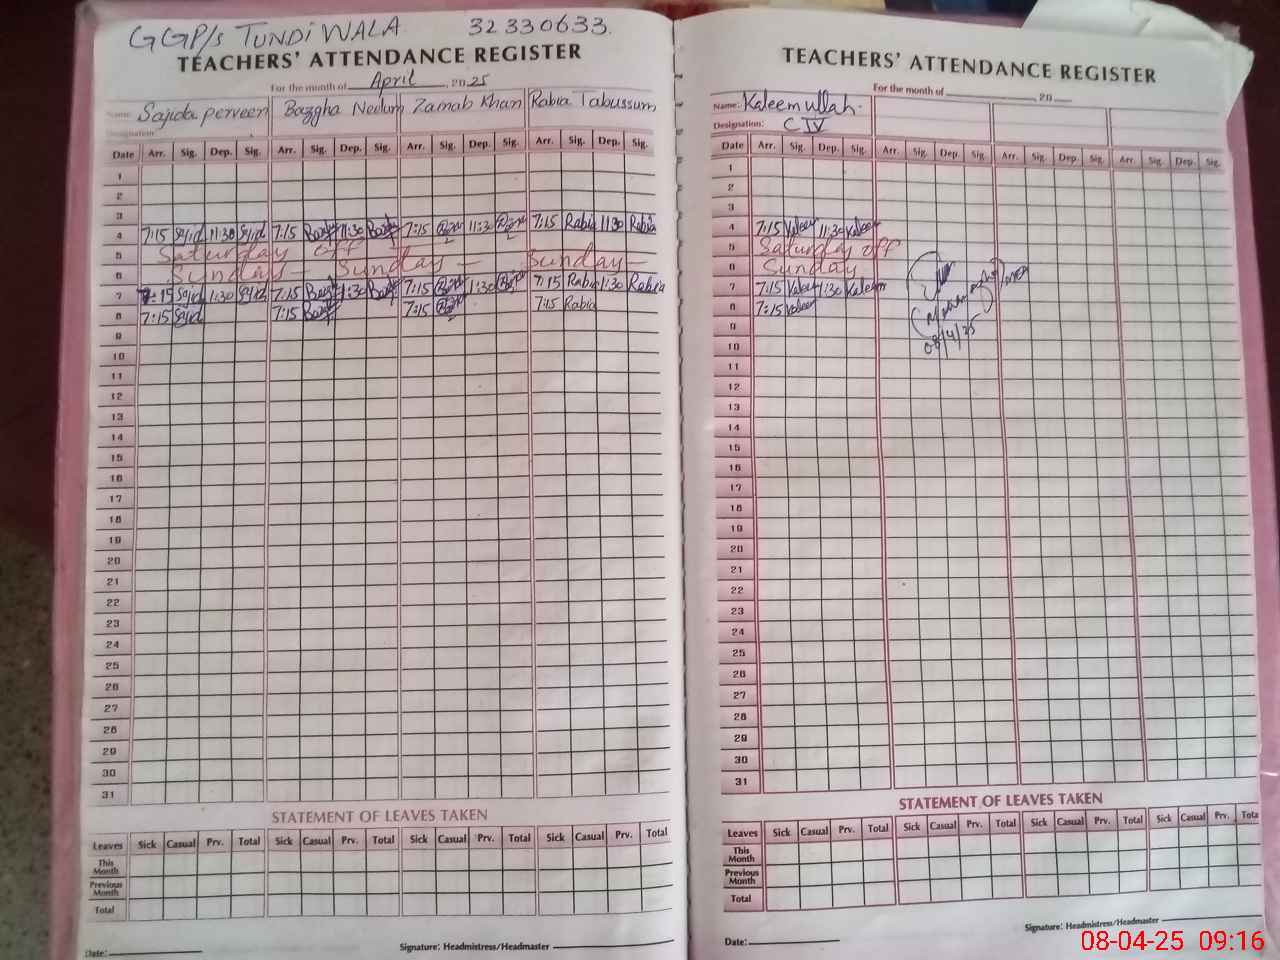 GGP/s TUNDI WALA 32330633.
TEACHERS' ATTENDANCE REGISTER
For the month of April, 2025
Name: Sajida perveen Bazgha Neelum Zainab Khan Rabia Tabussum
Designation:
Date Arr. Sig. Dep. Sig. Arr. Sig. Dep. Sig. Arr. Sig. Dep. Sig. Arr. Sig. Dep. Sig.
1
2
3
4 7:15 Sajid 11:30 Sajid 7:15 11:30 7:15 11:30 7:15 Rabia 11:30 Rabia
5 Saturday off
6 Sunday — Sunday — Sunday —
7 7:15 Sajid 1:30 Sajid 7:15 1:30 7:15 1:30 7:15 Rabia 1:30 Rabia
8 7:15 Sajid 7:15 7:15 7:15 Rabia
9
10
11
12
13
14
15
16
17
18
19
20
21
22
23
24
25
26
27
28
29
30
31
STATEMENT OF LEAVES TAKEN
Leaves Sick Casual Prv. Total Sick Casual Prv. Total Sick Casual Prv. Total Sick Casual Prv. Total
This Month
Previous Month
Total
Date:
Signature: Headmistress/Headmaster
TEACHERS' ATTENDANCE REGISTER
For the month of , 20
Name: Kaleem ullah.
Designation: C IV
Date Arr. Sig. Dep. Sig. Arr. Sig. Dep. Sig. Arr. Sig. Dep. Sig. Arr. Sig. Dep. Sig.
1
2
3
4 7:15 Kaleem 11:30 Kaleem
5 Saturday off
6 Sunday
7 7:15 Kaleem 1:30 Kaleem
8 7:15 Kaleem
08/4/25
9
10
11
12
13
14
15
16
17
18
19
20
21
22
23
24
25
26
27
28
29
30
31
STATEMENT OF LEAVES TAKEN
Leaves Sick Casual Prv. Total Sick Casual Prv. Total Sick Casual Prv. Total Sick Casual Prv. Total
This Month
Previous Month
Total
Date:
Signature: Headmistress/Headmaster
08-04-25 09:16